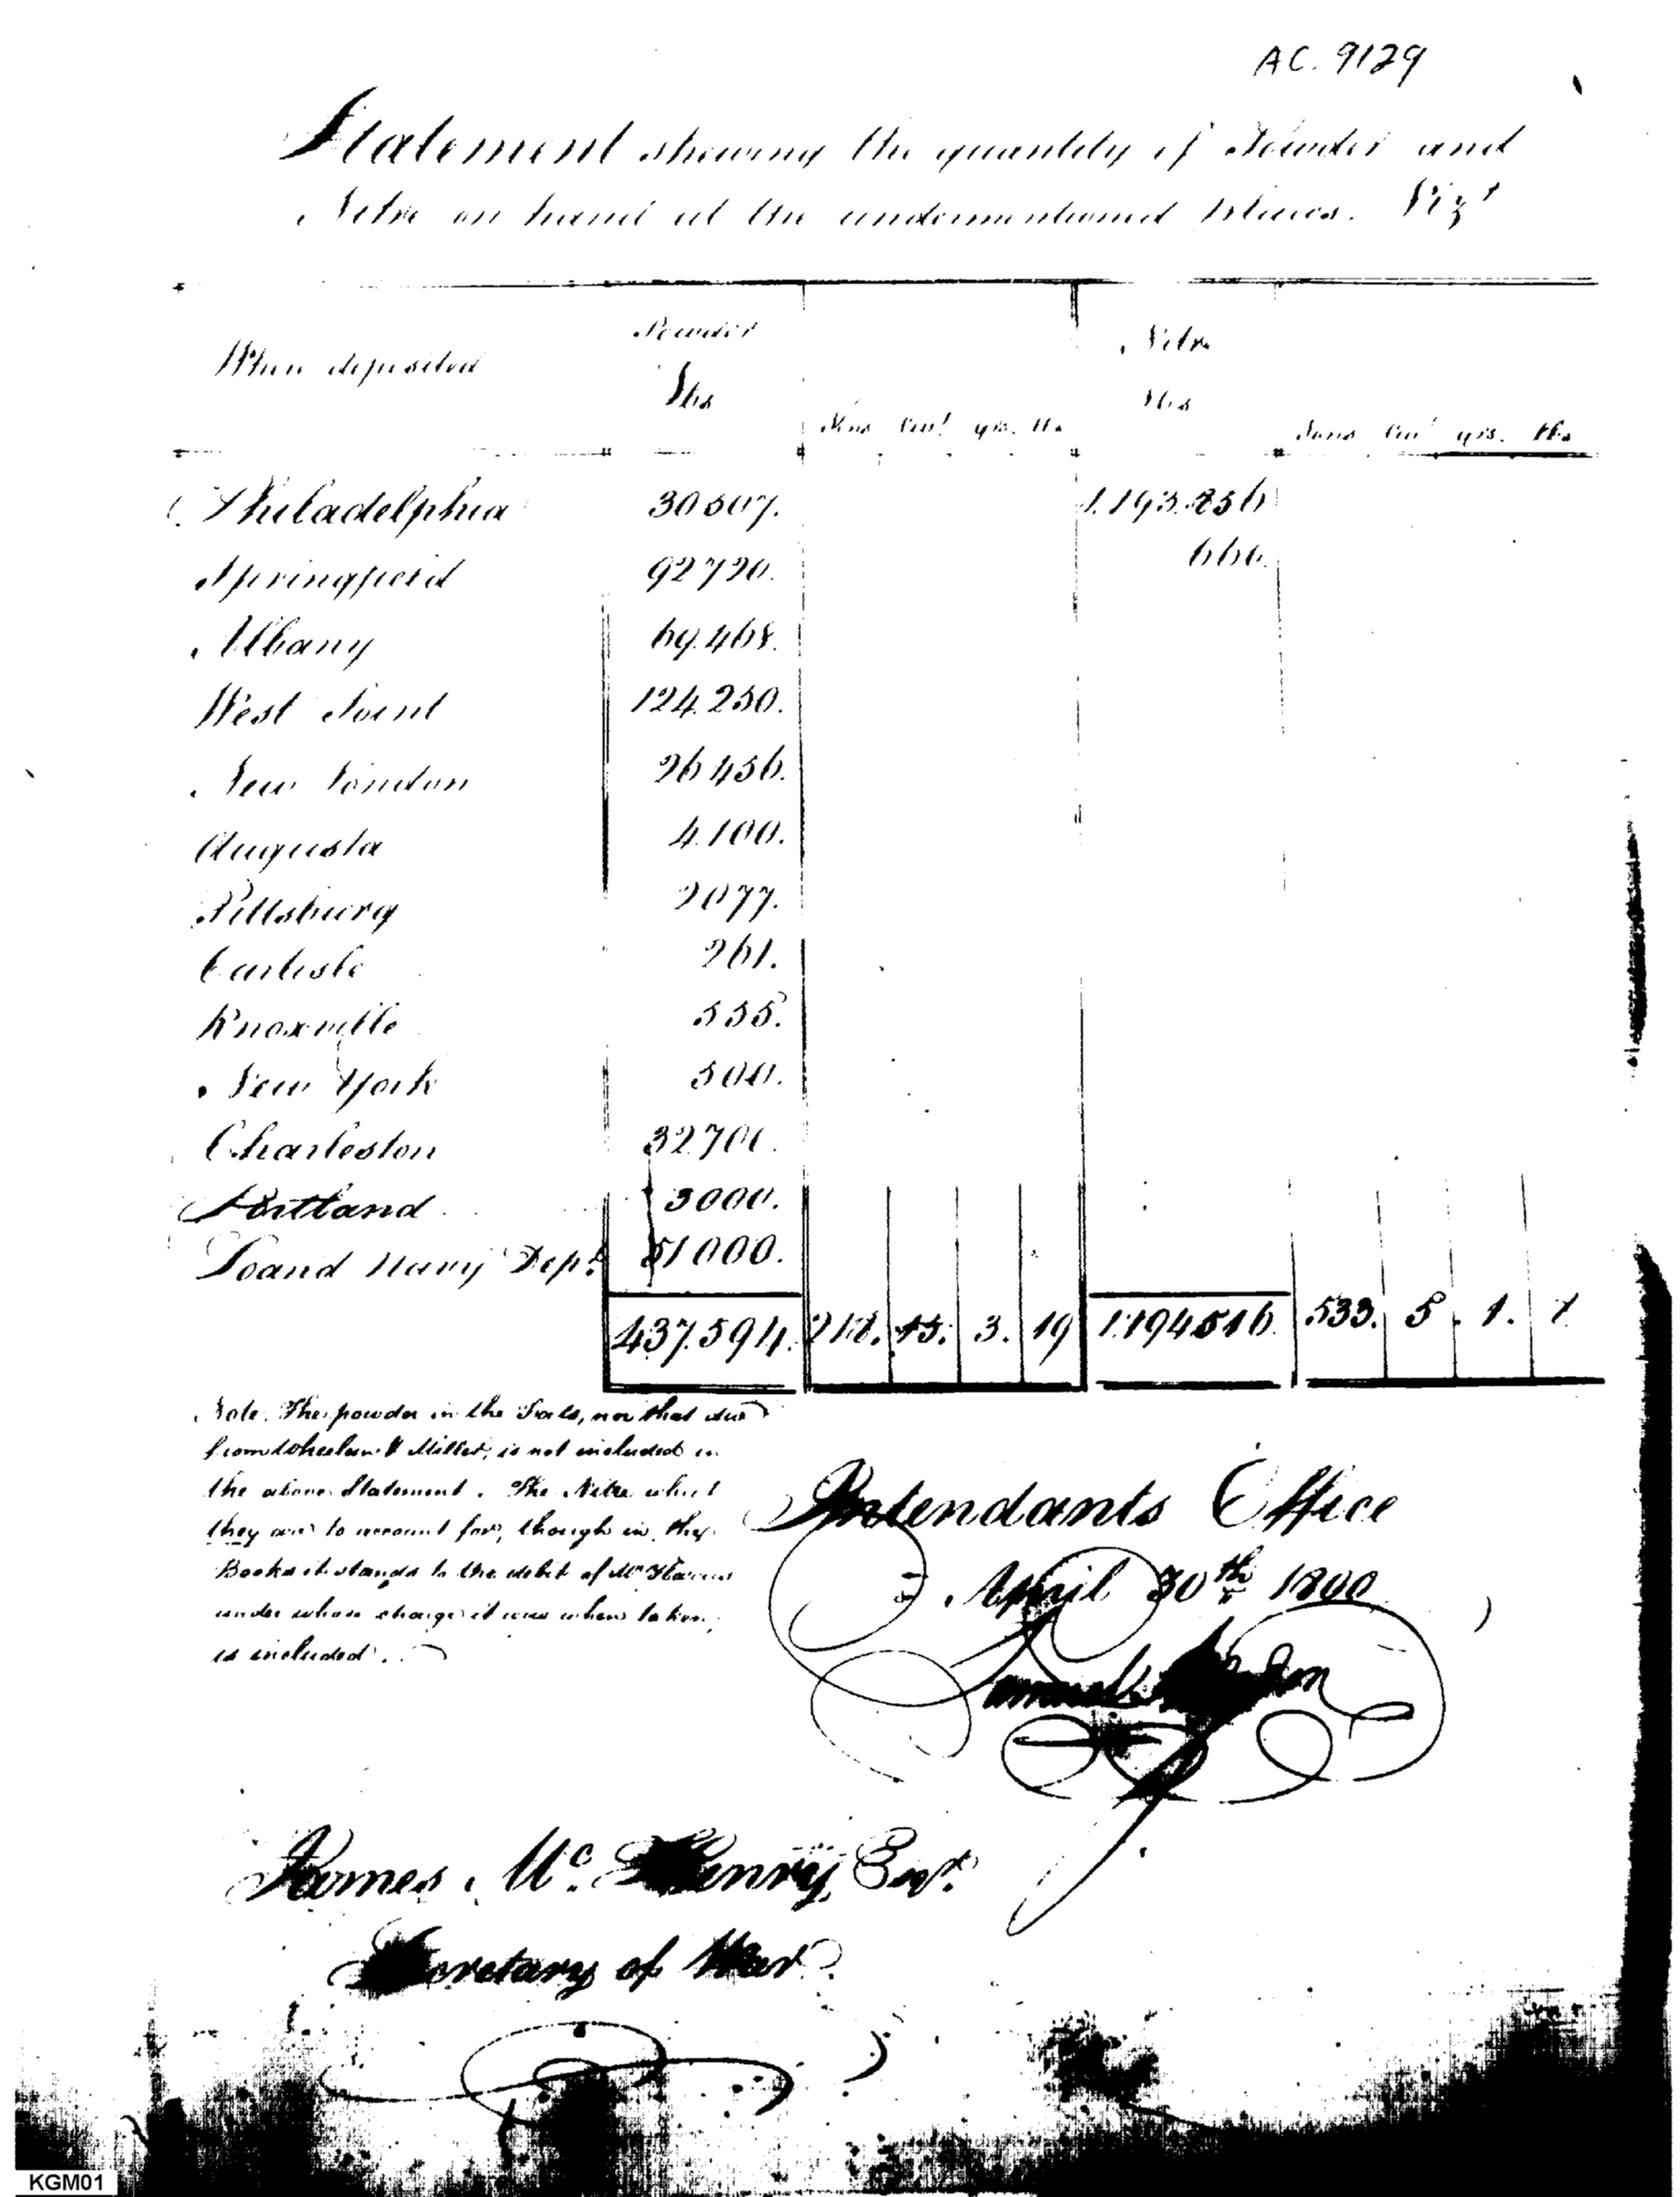 AC. 9129
Statement shewing the quantity of Powder and
Nitre on hand at the undermentioned places. Vizt
Where deposited Powder Nitre
lbs lbs
Tons Cwt qrs. lbs Tons Cwt qrs. lbs
Philadelphia 30507. 1.193.856
Springfield 92720. 660.
Albany 69.468.
West Point 124.250.
New London 26456.
Augusta 4.100.
Pittsburg 2077.
Carlisle 261.
Knoxville 555.
New York 500.
Charleston 32700.
Portland 3000.
Loand Navy Dept. 51000.
437.594. 218. 15. 3. 19 1.194516. 533. 5. 1.
Note. The powder in the Forts, nor that due
from Whealen & Miller, is not included in
the above Statement. The Nitre which
they are to account for, though in the
Books it stands to the debit of Mr Harris
under whose charge it was when taken,
is included.
Intendants Office
April 30th 1800
Samuel Hodgdon
James McHenry, Esqr.
Secretary of War
KGM01